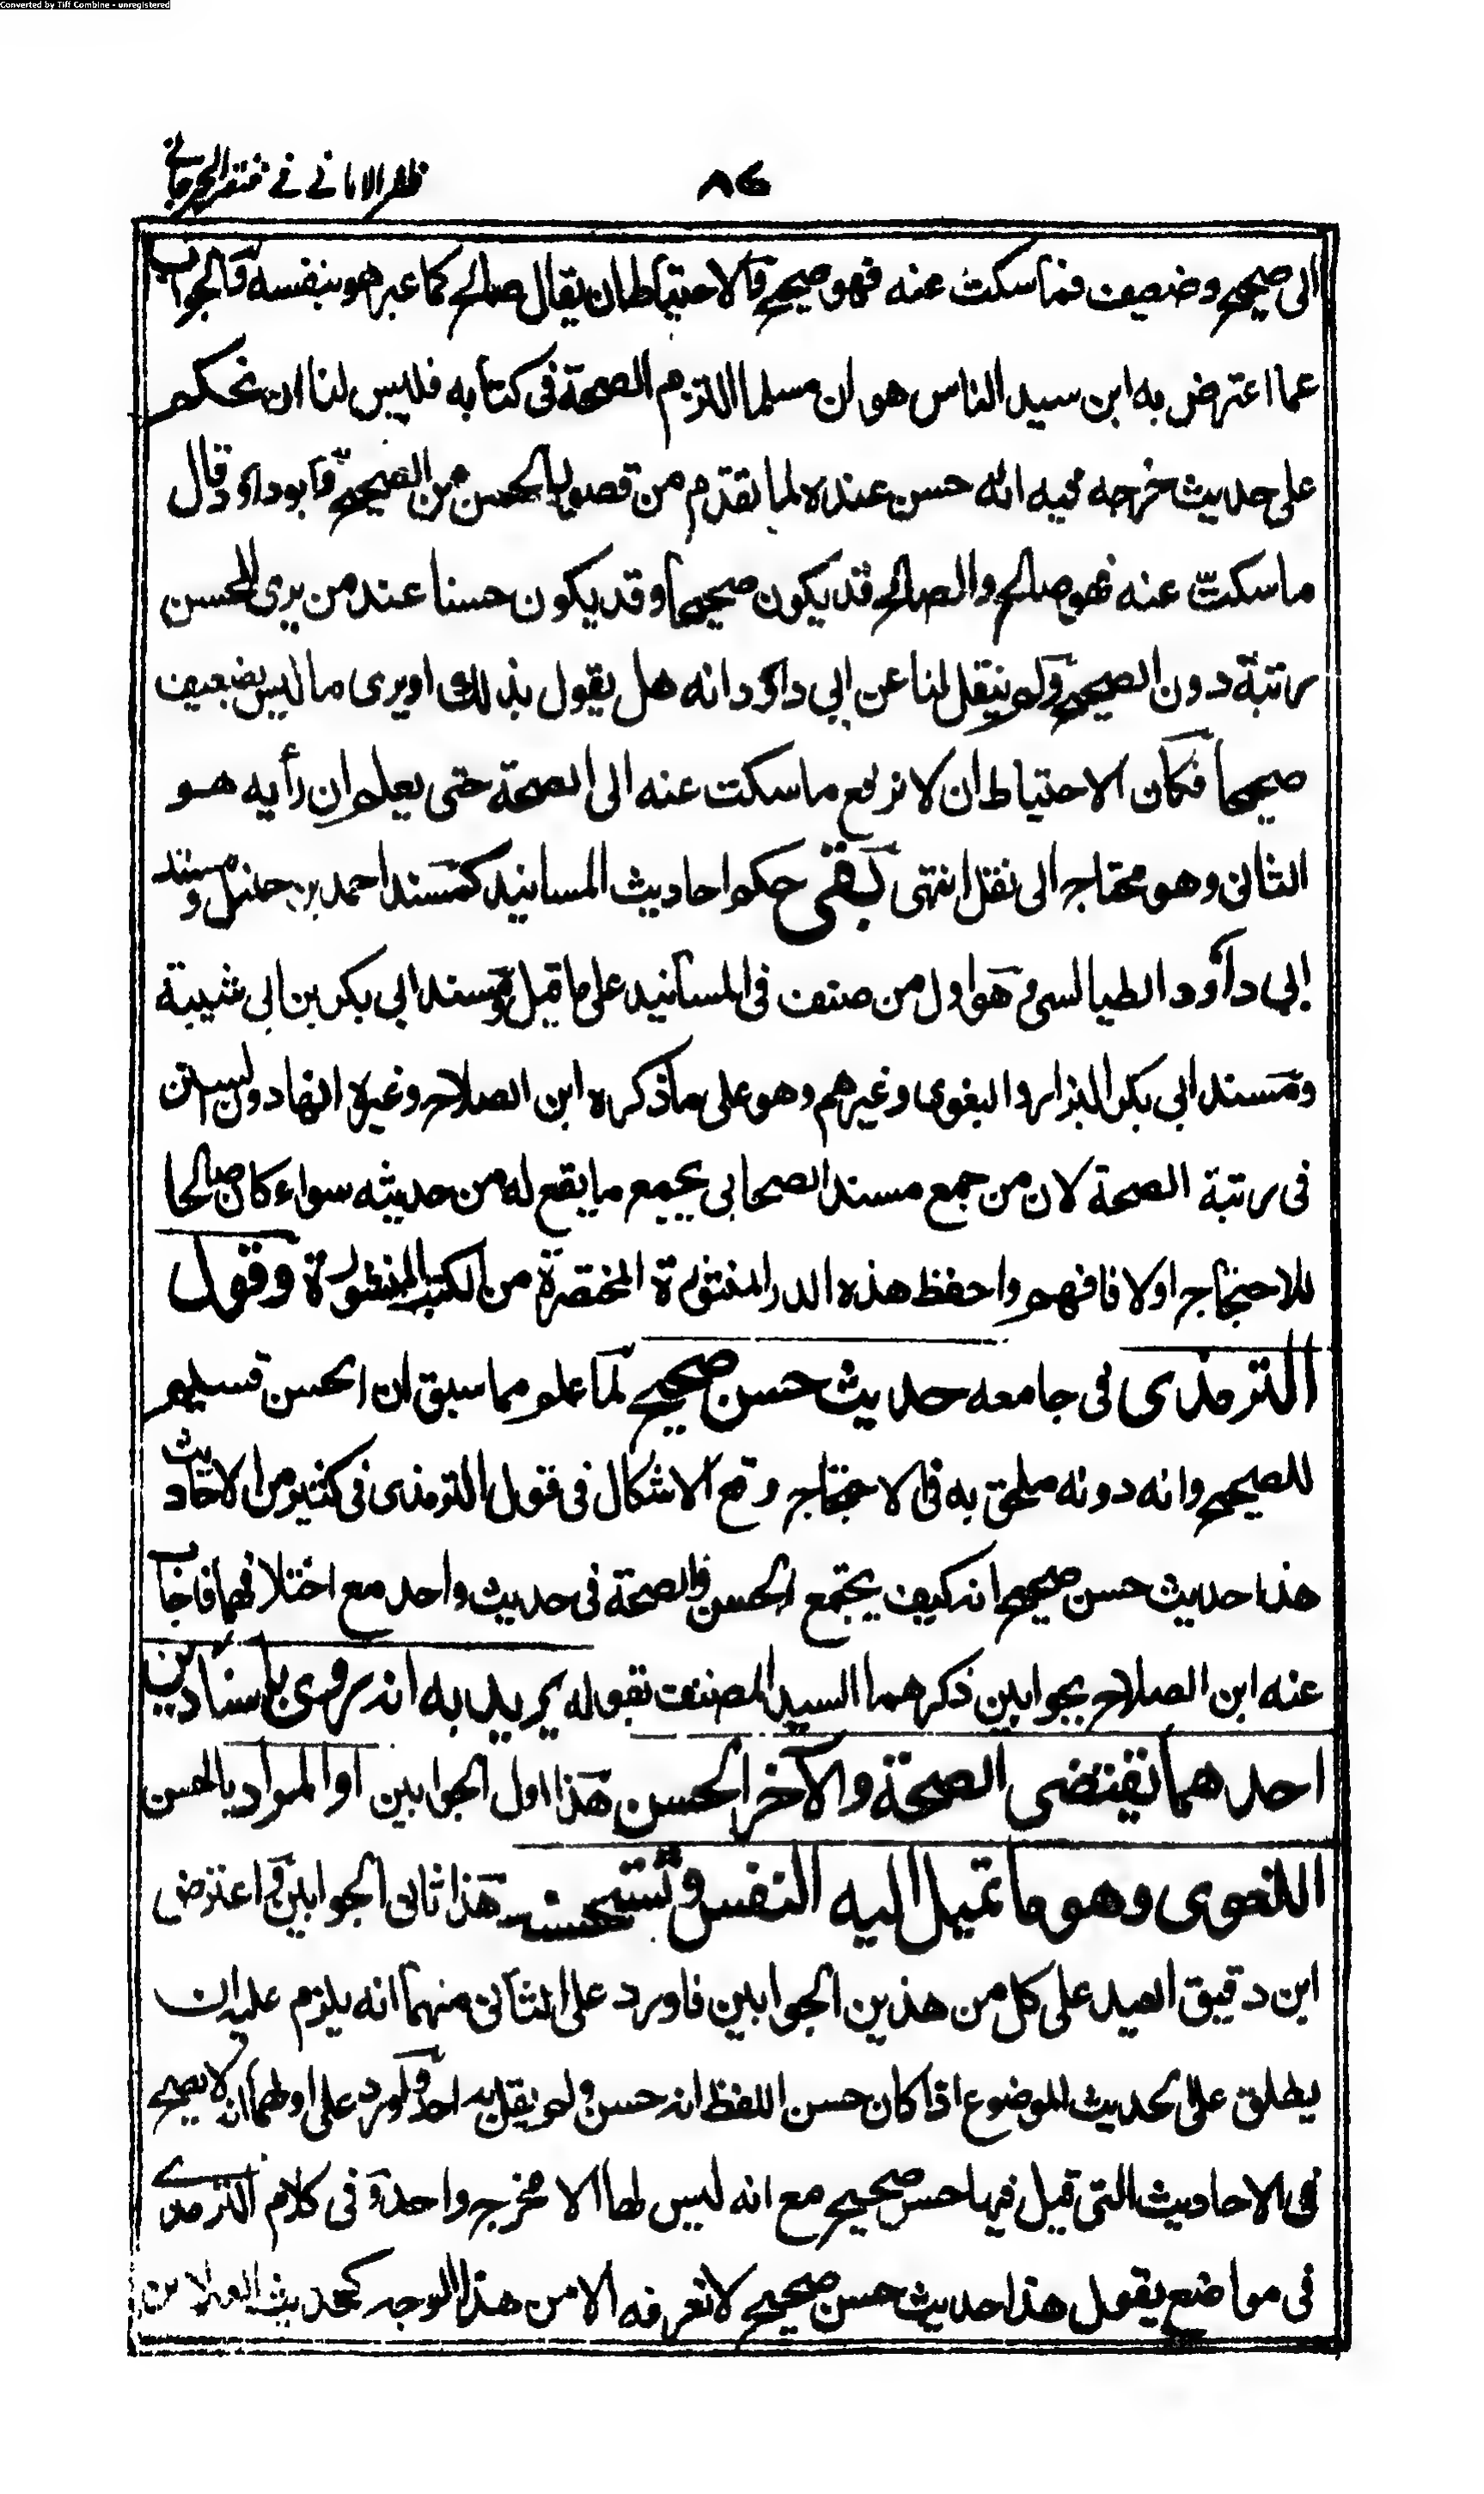 Converted by Tiff Combine - unregistered
ظفر الامانى فى مختصر الجرجانى
٨٤
الى صحيح وضعيف فما سكت عنه فهو صحيح والاحتياط ان يقال صالح كما عبر هو بنفسه والجواب
عما اعترض به ابن سيد الناس هو ان مسلما التزم الصحة فى كتابه فليس لنا ان نحكم
على حديث خرجه فيه انه حسن عنده لما تقدم من قصور الحسن من الصحيح وابو داؤد قال
ما سكتّ عنه فهو صالح والصالح قد يكون صحيحا وقد يكون حسنا عند من يرى الحسن
رتبة دون الصحيح ولم ينقل لنا عن ابى داؤد انه هل يقول بذلك او يرى ما ليس بضعيف
صحيحا فكان الاحتياط ان لا نرفع ما سكت عنه الى الصحة حتى يعلم ان رأيه هو
الثانى وهو محتاج الى نقل انتهى بقى حكم احاديث المسانيد كمسند احمد بن حنبل ومسند
ابى داؤد الطيالسى وهو اول من صنف فى المسانيد على ما قيل ومسند ابى بكر بن ابى شيبة
ومسند ابى بكر البزار والبغوى وغيرهم وهو على ما ذكره ابن الصلاح وغيره انها دون السنن
فى رتبة الصحة لان من جمع مسند الصحابى يجمع ما يقع له من حديثه سواء كان صالحا
للاحتجاج اولا فافهم واحفظ هذه الدرر المنثورة المختصرة من الكتب المنشورة وقول
الترمذى فى جامعه حديث حسن صحيح لما علم مما سبق ان الحسن قسيم
للصحيح وانه دونه ملحق به فى الاحتجاج وقع الاشكال فى قول الترمذى فى كثير من الاحاديث
هذا حديث حسن صحيح انه كيف يجتمع الحسن والصحة فى حديث واحد مع اختلافهما فاجاب
عنه ابن الصلاح بجوابين ذكرهما السيد المصنف بقوله يريد به انه روى باسنادين
احدهما يقتضى الصحة والآخر الحسن هذا اول الجوابين او المراد بالحسن
اللغوى وهو ما تميل اليه النفس وتستحسنه هذا ثانى الجوابين واعترض
ابن دقيق العيد على كل من هذين الجوابين فاورد على الثانى منهما انه يلزم عليه ان
يطلق على الحديث الموضوع اذا كان حسن اللفظ انه حسن ولم يقل به احد واورد على اولهما انه لا يصح
فى الاحاديث التى قيل فيها حسن صحيح مع انه ليس لها الا مخرج واحد وفى كلام الترمذى
فى مواضع يقول هذا حديث حسن صحيح لا نعرفه الا من هذا الوجه كحديث العلاء بن